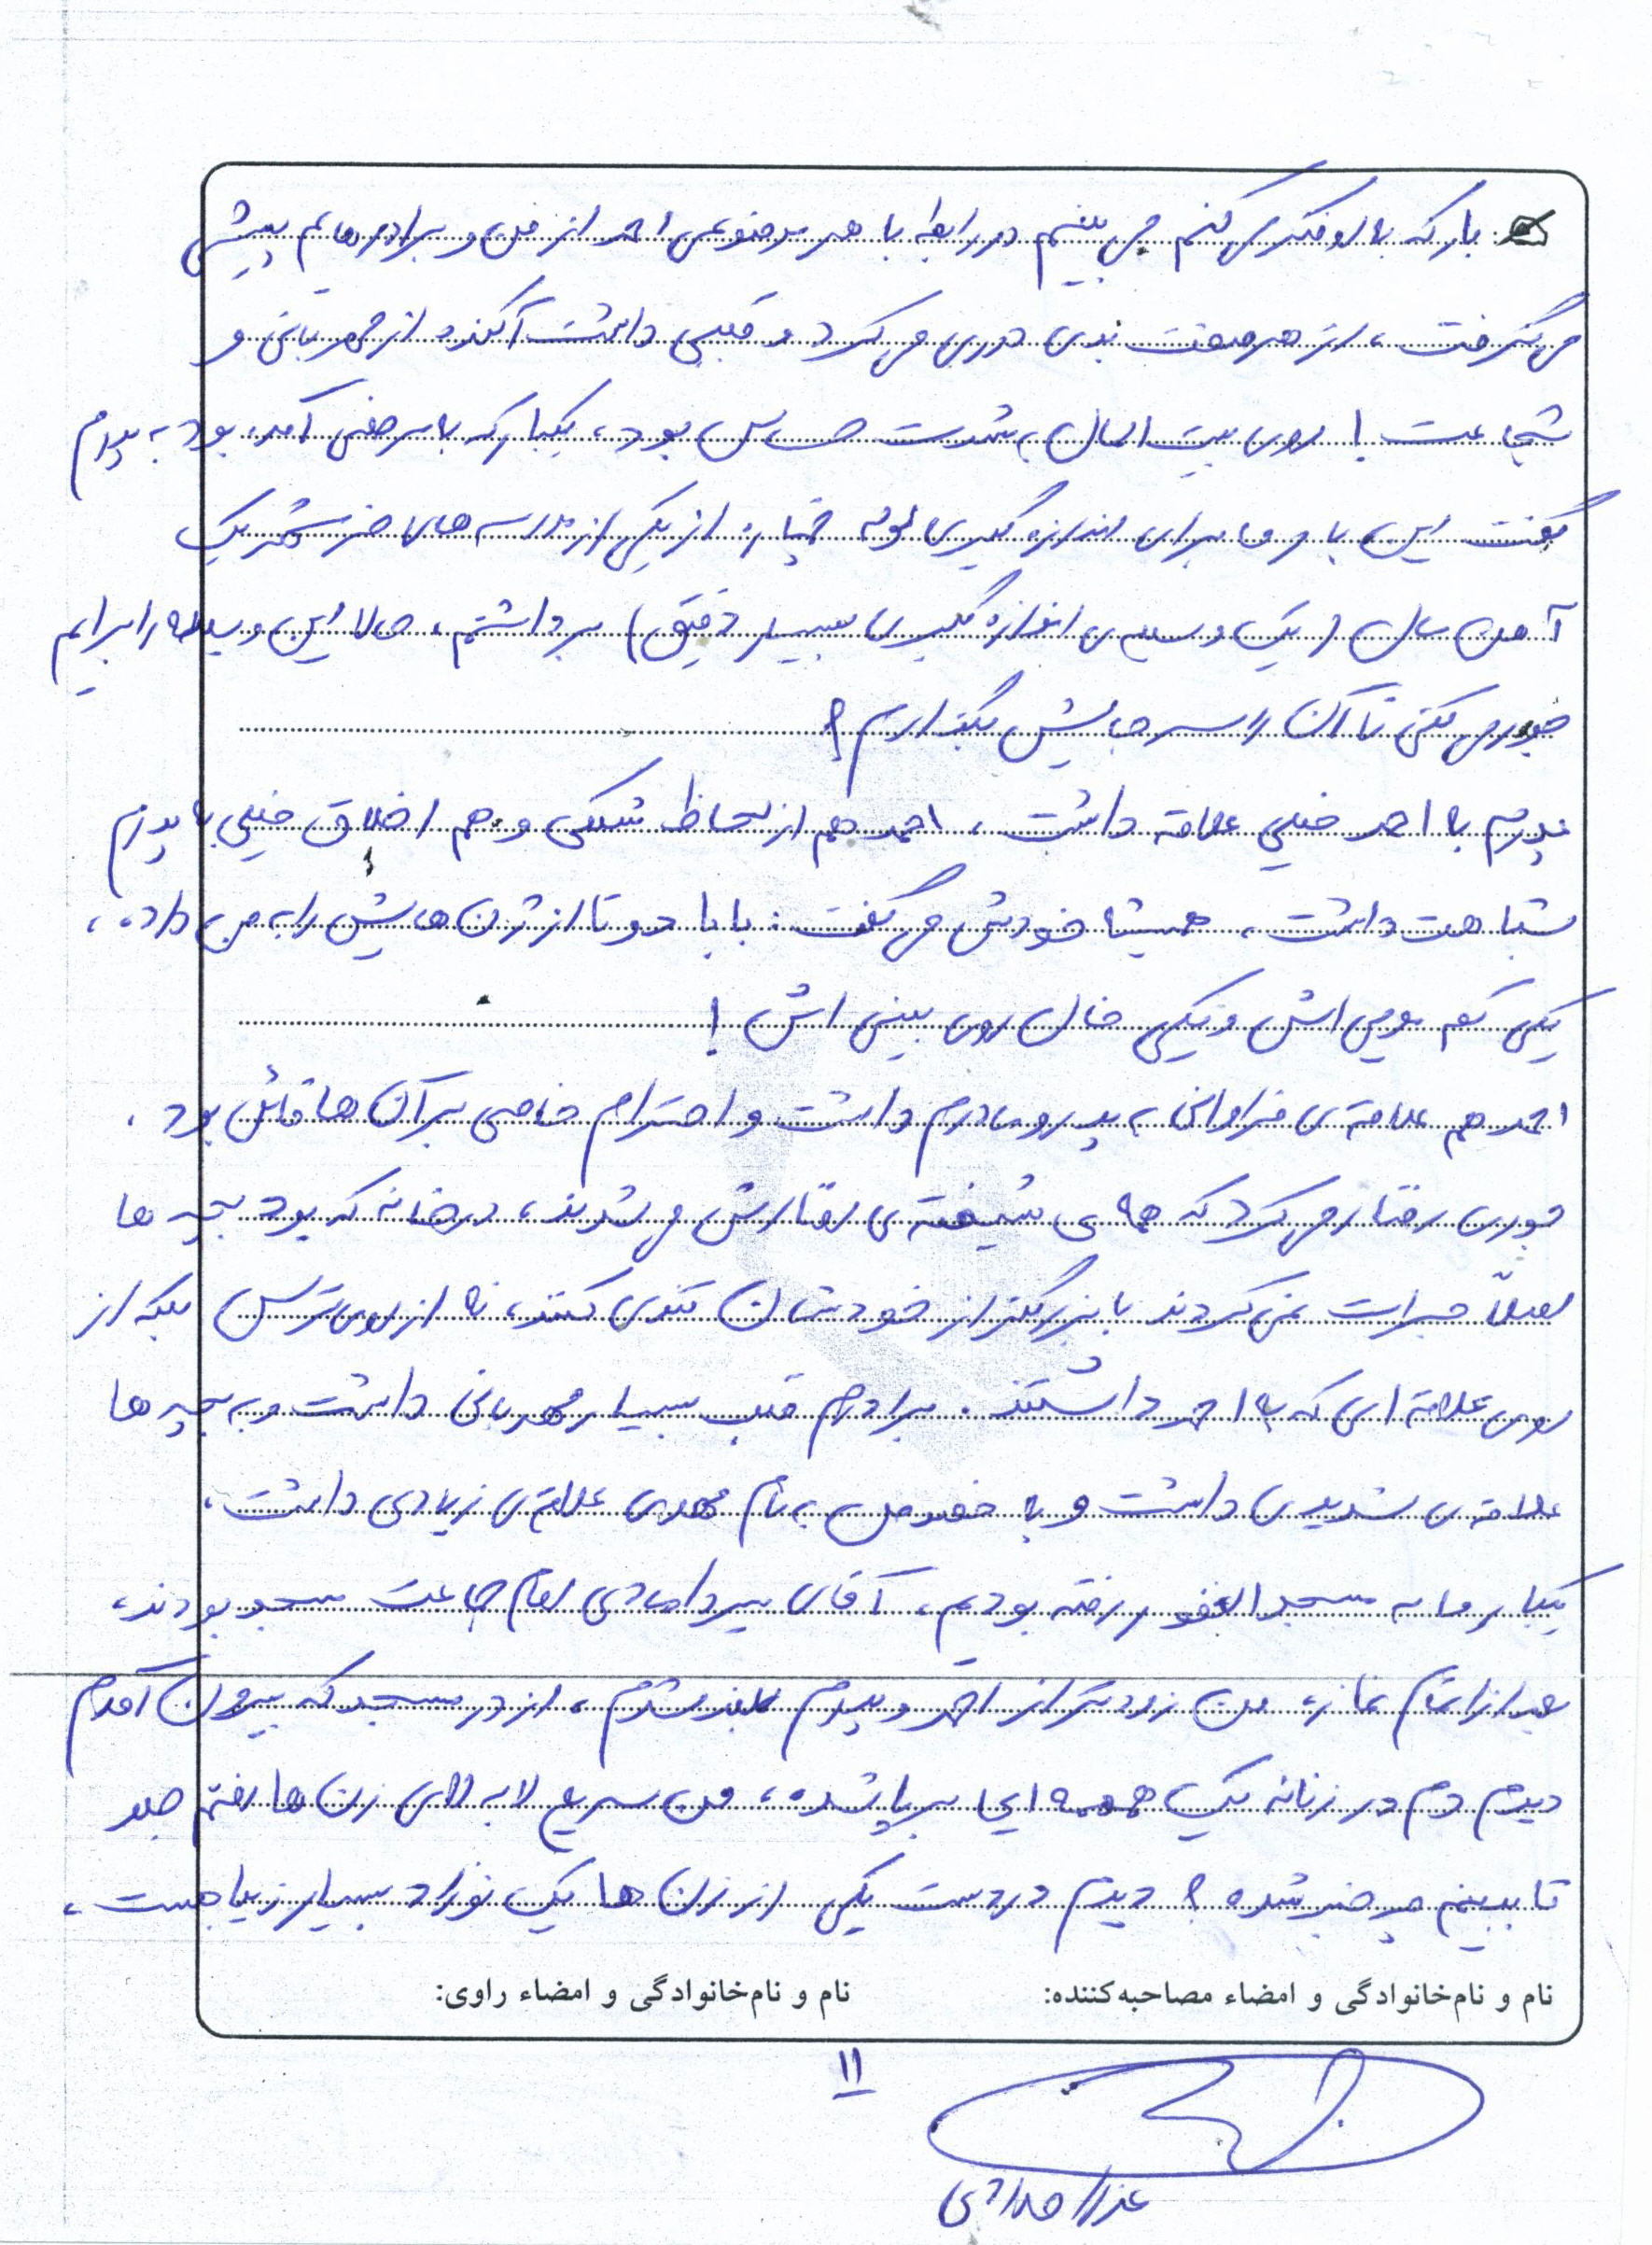 بار که با او فکر می کنم می بینم در رابطه با هر موضوعی احمد از من و برادرهایم پیشی
می گرفت، از هر صفت بدی دوری می کرد و قلبی داشت آکنده از مهربانی و
شجاعت! روی بیت المال به شدت حساس بود، یکبار که با مرخصی آمده بود به پدرم
گفت این بار ما برای اندازه گیری لوله خمپاره از یکی از مدرسه های خرمشهر یک
آمدن سال (یک وسیله ی اندازه گیری بسیار دقیق) برداشتم، حالا این وسیله را برایم
جور می کنی تا آن را سر جایش بگذارم؟
پدرم به احمد خیلی علاقه داشت، احمد هم از لحاظ شکلی و هم اخلاق خیلی با پدرم
شباهت داشت، همیشه خودش می گفت: بابا دو تا از ژن هایش را به من داده،
یکی کم مویی اش و یکی خال روی بینی اش!
احمد هم علاقه ی فراوانی به پدر و مادرم داشت و احترام خاصی بر آن ها قائل بود.
جوری رفتار می کرد که همه ی شیفته ی رفتارش می شدند، در خانه که بود بچه ها
اصلاً جرات نمی کردند با بزرگتر از خودشان تندی کنند، نه از روی ترس بلکه از
روی علاقه ای که به احمد داشتند. برادرم قلب بسیار مهربانی داشت و به بچه ها
علاقه ی شدیدی داشت و به خصوص به نام مهدی علاقه ی زیادی داشت،
یکبار ما به مسجد الغفور رفته بودیم، آقای میردامادی امام جماعت مسجد بودند،
بعد از اتمام نماز، من زودتر از احمد و پدرم بلند شدم، از در مسجد که بیرون آمدم
دیدم دم در زنانه یک همهمه ای برپا شده، من سریع لابه لای زن ها رفتم جلو
تا ببینم چه خبر شده؟ دیدم در دست یکی از زن ها یک نوزاد بسیار زیبا هست،
نام و نام‌خانوادگی و امضاء مصاحبه‌کننده: نام و نام‌خانوادگی و امضاء راوی:
۱۱